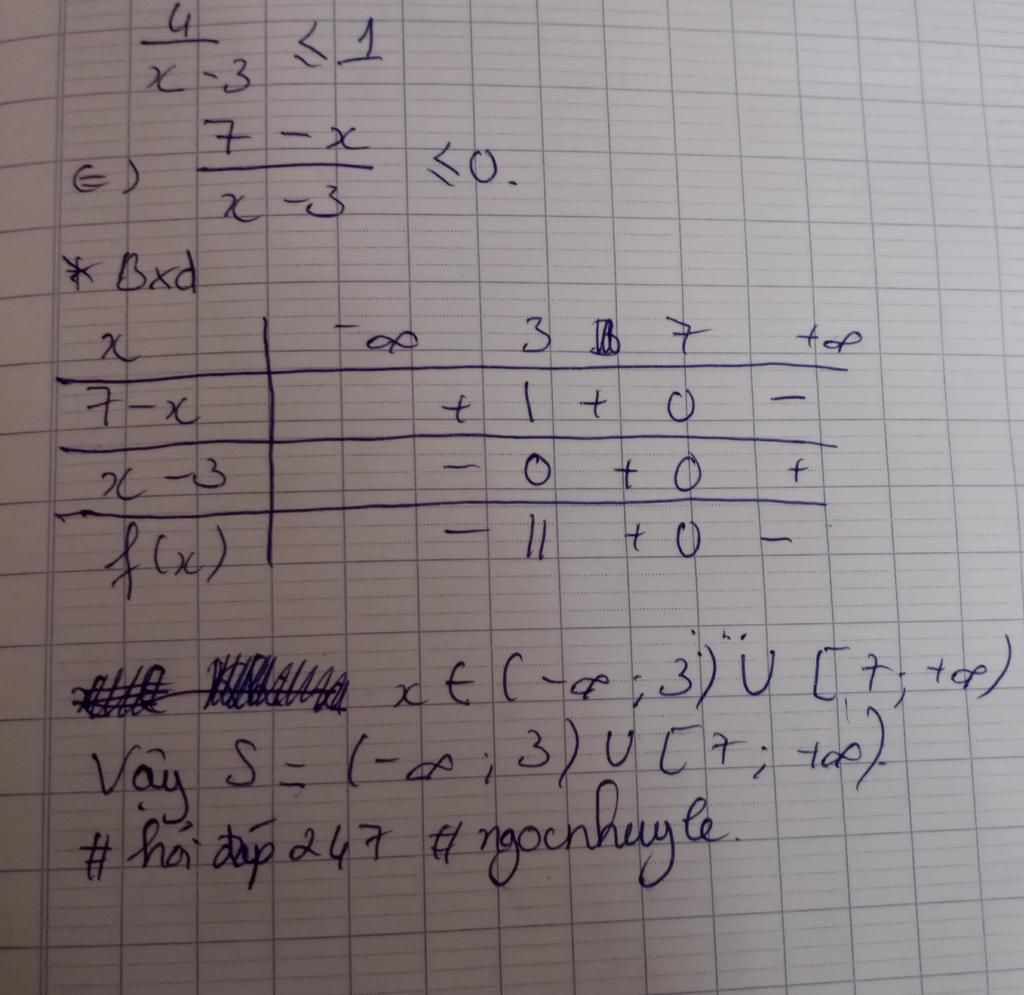 4/(x - 3) ≤ 1
⇔) (7 - x)/(x - 3) ≤ 0.
* Bxd
x | -∞ 3 7 +∞
7 - x | + | + 0 -
x - 3 | - 0 + 0 +
f(x) | - || + 0 -
x ∈ (-∞ ; 3) ∪ [7 ; +∞)
Vậy S = (-∞ ; 3) ∪ [7 ; +∞).
# hỏi đáp 247 # ngocnhuyle.